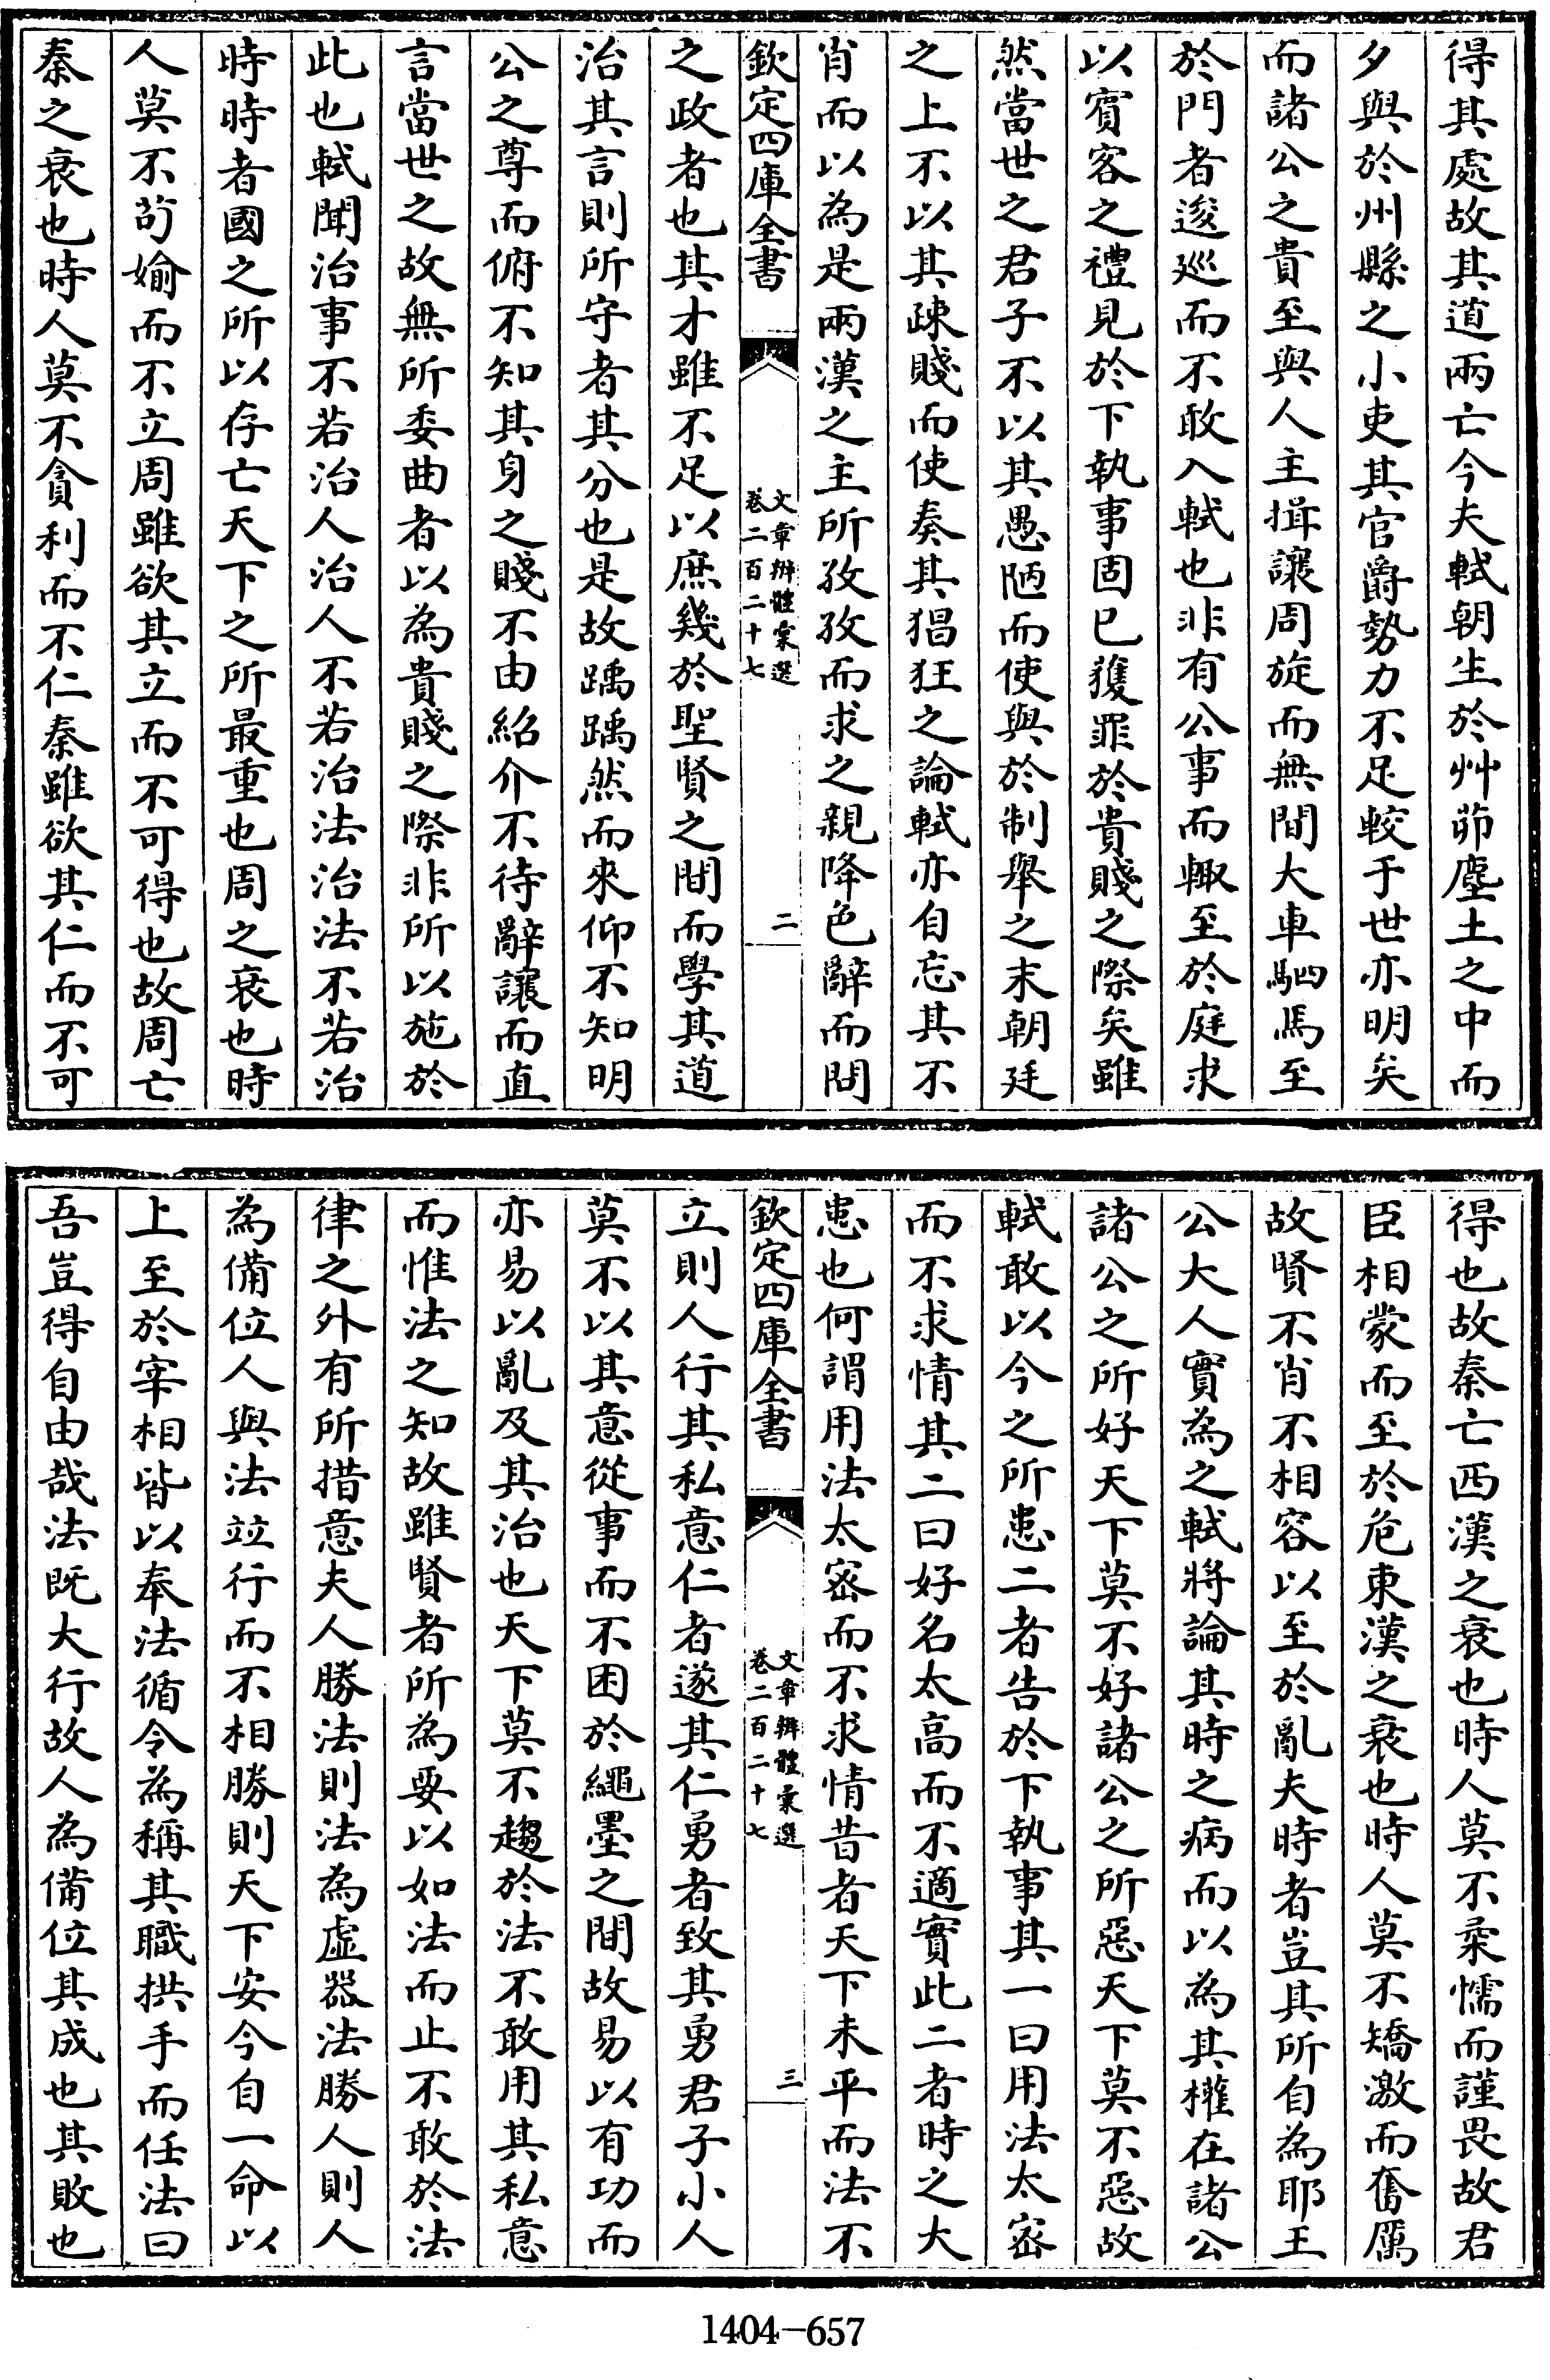 得其處故其道兩亡今夫軾朝生於艸茆塵土之中而
夕與於州縣之小吏其官爵勢力不足較于世亦明矣
而諸公之貴至與人主揖讓周旋而無間大車駟馬至
於門者逡廵而不敢入軾也非有公事而輙至於庭求
以賓客之禮見於下執事固已獲罪於貴賤之際矣雖
然當世之君子不以其愚陋而使與於制舉之末朝廷
之上不以其疎賤而使奏其猖狂之論軾亦自忘其不
肖而以為是兩漢之主所孜孜而求之親降色辭而問
欽定四庫全書
文章辨體彙選
卷二百二十七
二
之政者也其才雖不足以庶幾於聖賢之間而學其道
治其言則所守者其分也是故踽踽然而來仰不知明
公之尊而俯不知其身之賤不由紹介不待辭讓而直
言當世之故無所委曲者以為貴賤之際非所以施於
此也軾聞治事不若治人治人不若治法治法不若治
時時者國之所以存亡天下之所最重也周之衰也時
人莫不茍媮而不立周雖欲其立而不可得也故周亡
秦之衰也時人莫不貪利而不仁秦雖欲其仁而不可
得也故秦亡西漢之衰也時人莫不柔懦而謹畏故君
臣相蒙而至於危東漢之衰也時人莫不矯激而奮厲
故賢不肖不相容以至於亂夫時者豈其所自為耶王
公大人實為之軾將論其時之病而以為其權在諸公
諸公之所好天下莫不好諸公之所惡天下莫不惡故
軾敢以今之所患二者告於下執事其一曰用法太宻
而不求情其二曰好名太高而不適實此二者時之大
患也何謂用法太宻而不求情昔者天下未平而法不
欽定四庫全書
文章辨體彙選
卷二百二十七
三
立則人行其私意仁者遂其仁勇者致其勇君子小人
莫不以其意從事而不困於繩墨之間故易以有功而
亦易以亂及其治也天下莫不趨於法不敢用其私意
而惟法之知故雖賢者所為要以如法而止不敢於法
律之外有所措意夫人勝法則法為虛器法勝人則人
為備位人與法竝行而不相勝則天下安今自一命以
上至於宰相皆以奉法循令為稱其職拱手而任法曰
吾豈得自由哉法既大行故人為備位其成也其敗也
1404-657